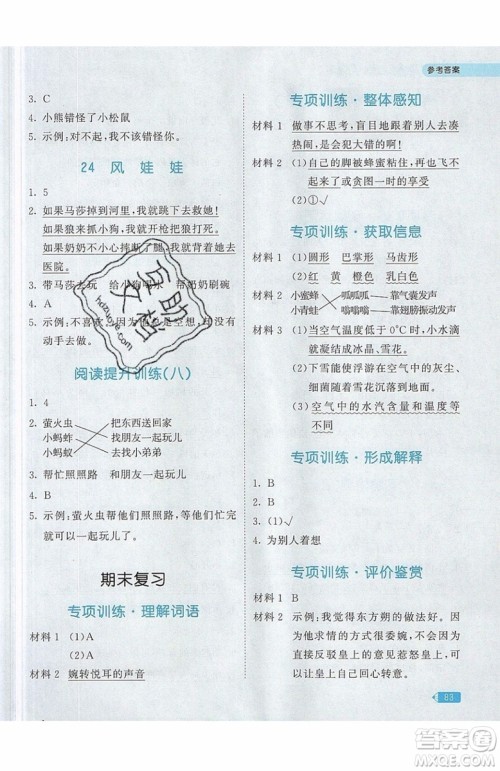 参考答案
3. C
4. 小熊错怪了小松鼠
5. 示例：对不起，我不该错怪你。
24 风娃娃
1. 5
2. 如果马莎掉到河里，我就跳下去救她！
如果狼来抓小狗，我就开枪把狼打死。
如果奶奶不小心摔断了腿，就送她去
医院。
3. 带马莎去玩 给小狗喂水 帮奶奶刷碗
4. A
5. 示例：不喜欢，因为他总是空想，却不
动手去做。
阅读提升训练（八）
1. 4
2. 萤火虫 把东西送回家
小蚂蚱 找朋友一起玩儿
小蚂蚁 去找小弟弟
3. 帮忙照照路 和朋友一起玩儿
4. A
5. 示例：萤火虫帮他们照照路，他们一
起玩儿。
期末复习
专项训练·理解词语
材料1 （1）A
（2）A
材料2 婉转悦耳的声音
专项训练·整体感知
材料1 做事不思考，盲目地跟着别人去凑
热闹，是会犯大错的啊！
材料2 （1）自己的脚被蜂蜜粘住，再也飞不
起来，却因贪图一时享受而丧生
（2）√
专项训练·获取信息
材料1 （1）圆形 巴掌形 马齿形
（2）红 黄 橙色 乳白色
材料2 小蜜蜂 呱呱呱 靠气囊发声
小青蛙 嗡嗡嗡 靠翅膀振动发声
材料3 （1）当空气温度低于0℃时，小水滴
就凝结成了雪花
（2）能使悬浮游在空气中的灰尘、
细菌随着雪花沉落到地面。
（3）空气中的水汽含量和温度
不同。
专项训练·形成解释
1. B
2. B
3. （1）√
4. 为别人着想
专项训练·评价鉴赏
材料1 B
材料2 示例：我觉得东方朔的做法好。因
为他求情的方式很委婉，不会因为
直接反驳皇上的意见惹怒皇上，而
是让皇上自己回心转意。
83
互助文档
hdzuoye.com
答案圈
MXQE.COM